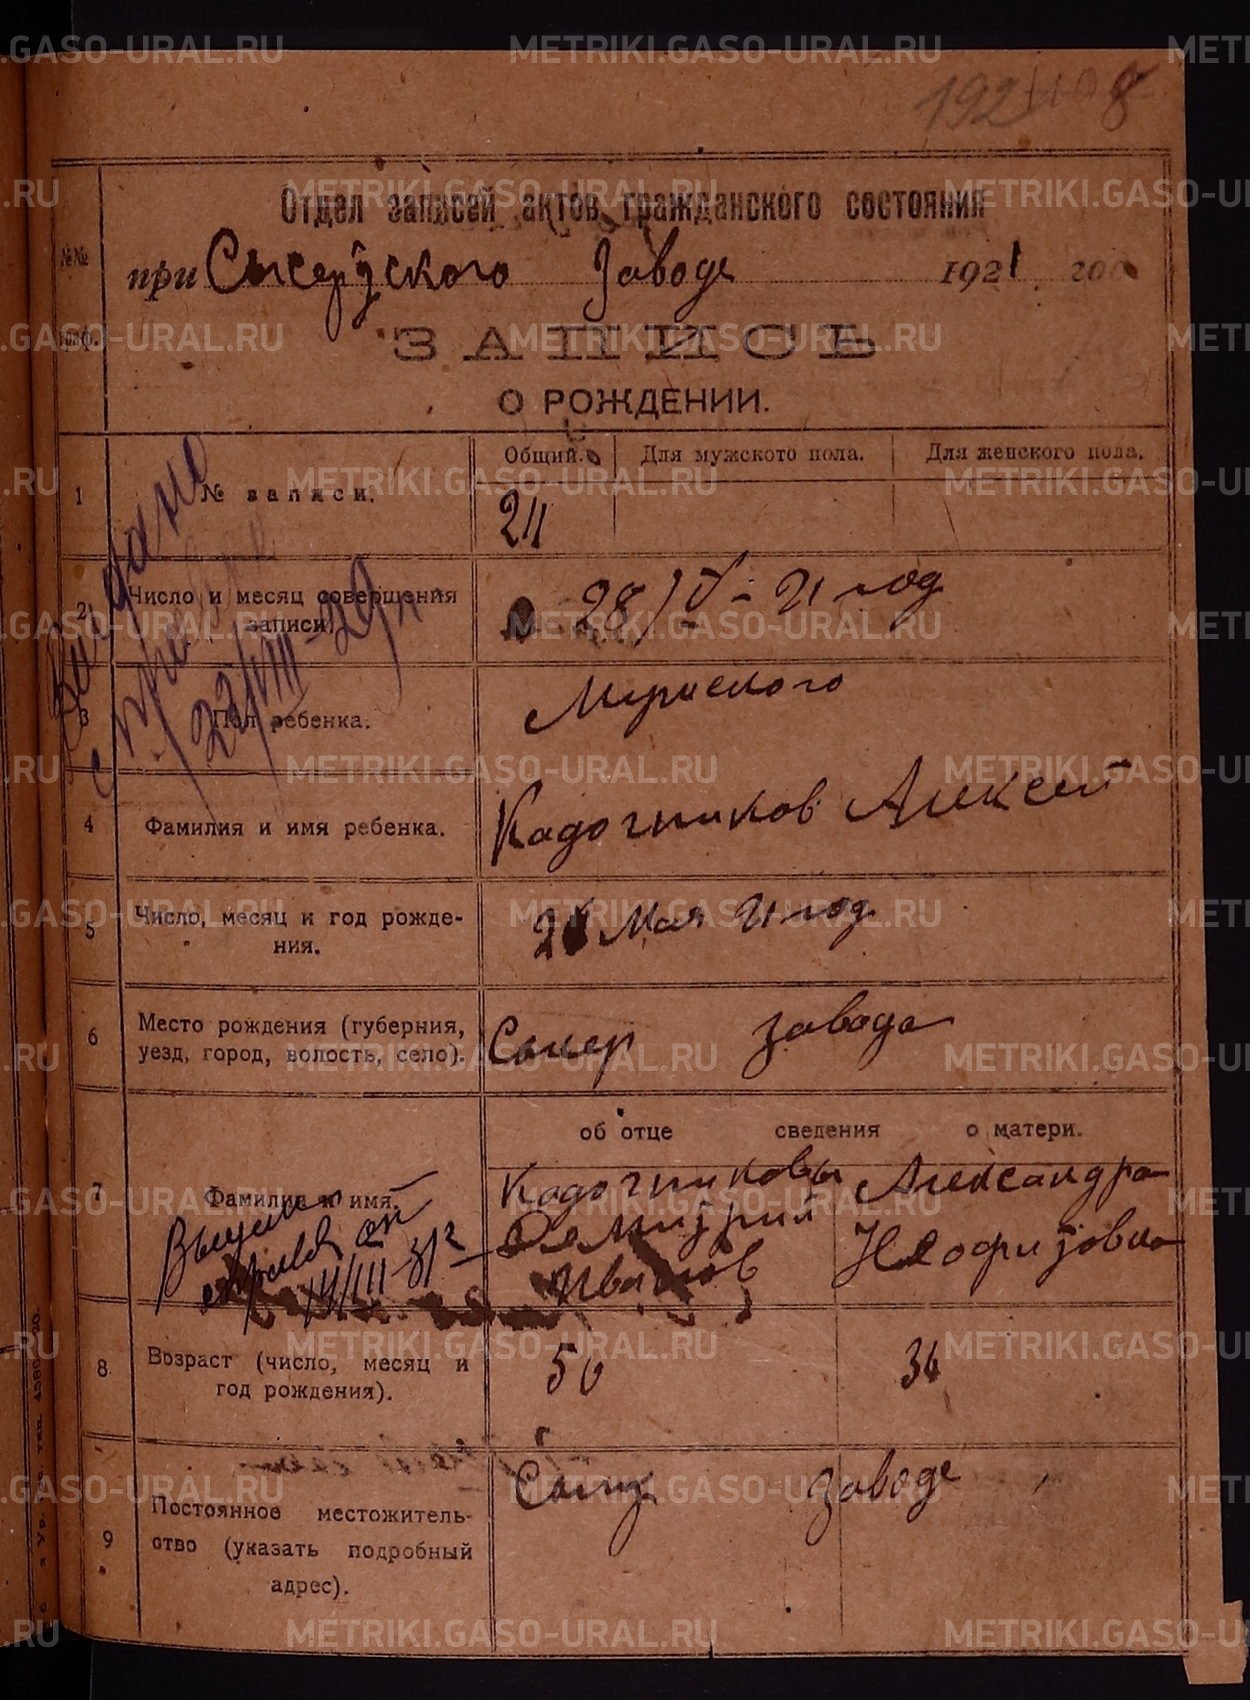 Отдел записей актов гражданского состояния
при Сысертского Заводе 1921 год
№№ граф.
ЗАПИСЬ
О РОЖДЕНИИ.
Общий. Для мужского пола. Для женского пола.
1 № записи. 211
2 Число и месяц совершения
записи. 28/V - 21 год
3 Пол ребенка. Мужского
4 Фамилия и имя ребенка. Кадочников Алексей
5 Число, месяц и год рожде-
ния. Мая 21 год
6 Место рождения (губерния,
уезд, город, волость, село). Сысер завода
об отце сведения о матери.
7 Фамилия и имя. Кадочниковы Александра
Дмитрий
Иванов
8 Возраст (число, месяц и
год рождения). 50 36
9 Постоянное местожитель-
ство (указать подробный
адрес). Заводе
Выдано
22/VIII-29
METRIKI.GASO-URAL.RU